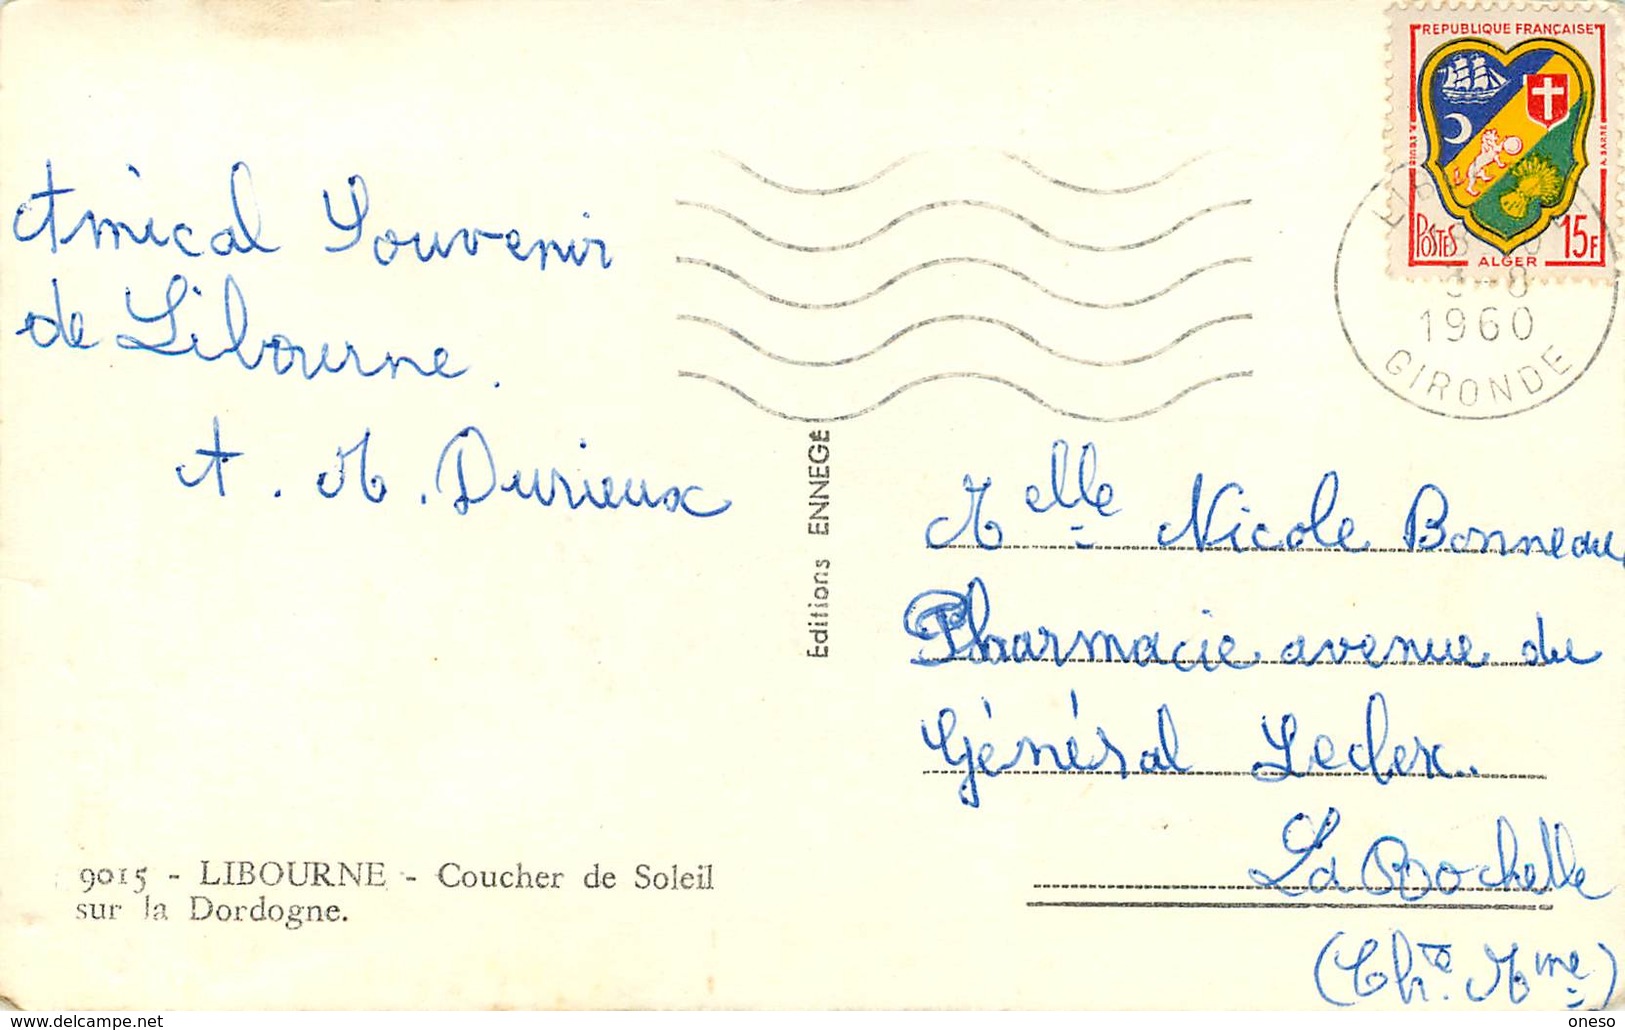 Amical Souvenir
de Libourne.
A. M. Durieux
9015 - LIBOURNE - Coucher de Soleil
sur la Dordogne.
Editions ENNEGÉ
REPUBLIQUE FRANÇAISE
POSTES
ALGER
15F
1960
GIRONDE
Melle Nicole Bonneau
Pharmacie avenue du
Général Leclerc.
La Rochelle
(Chte Mme)
oneso